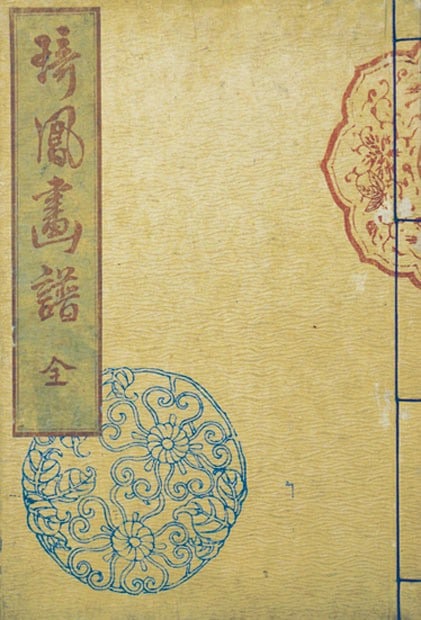 琦鳳畫譜 全